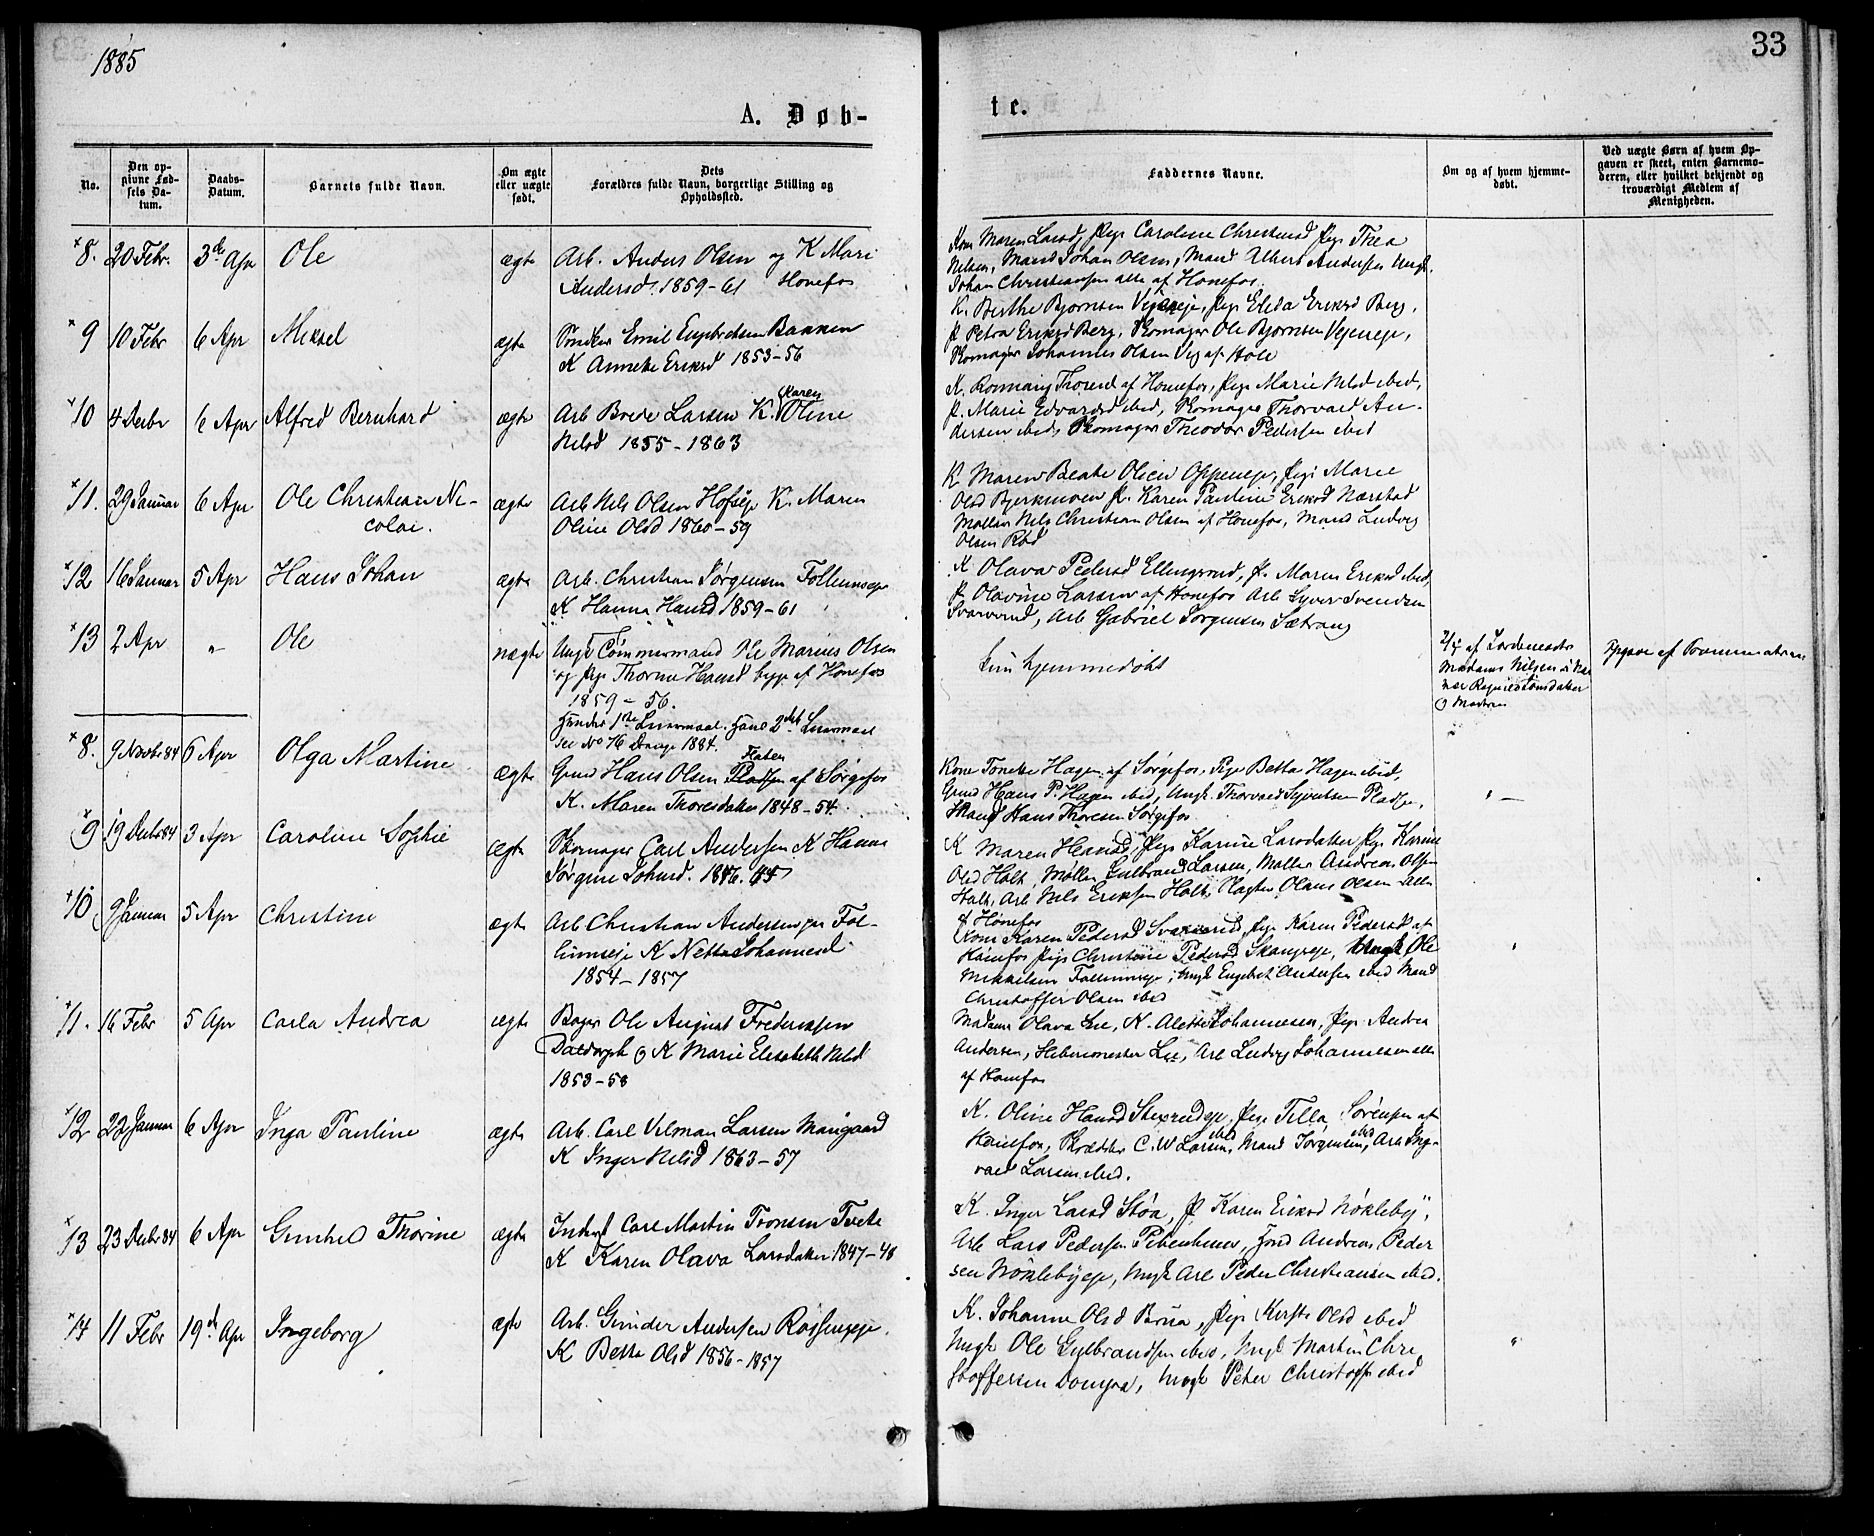 1885
33
A. Døb-
te.
No.
Den op-
givne Fød-
sels Da-
tum.
Daabs-
Datum.
Barnets fulde Navn.
Om ægte
eller uægte
født.
Dets
Forældres fulde Navn, borgerlige Stilling og
Opholdssted.
Faddernes Navne.
Om og af hvem hjemme-
døbt.
Ved uægte Børn af hvem Op-
gaven er skeet, enten Barnemo-
deren, eller hvilket bekjendt og
troværdigt Medlem af
Menigheden.
8. 20 Febr. 3de Apr Ole ægte Arb. Anders Olsen og K Mari
Andersd. 1859-61 Honefos
Kone Maren Larsd, Pige Caroline Christensd Pige Thea
Nilsen, Mand Johan Olsen, Mand Albert Andersen Ungk.
Johan Christiansen alle af Honefos.
9 10 Febr 6 Apr Miksel ægte Snedker Emil Engebretsen Bakken
K Annethe Eriksd 1853-56
K. Berthe Bjornsen Vejeneje, Pige Elida Eriksd Berg,
P. Petra Eriksd Berg, Skomager Ole Bjornsen Vejeneje,
Skomager Johannes Olsen Veg af Hole
10 4 Decbr 6 Apr Alfred Bernhard ægte Arb Brede Larsen K. Karen Oline
Nilsd 1855-1863
K. Ronnaug Thorend af Honefos, Pige Marie Nilsd ibid,
P. Marie Edvardsd ibid, Skomager Thorvald An-
dersen ibid, Skomager Theodor Pedersen ibid
11. 29 Januar 6 Apr Ole Christian Ni-
colai. ægte Arb Nils Olsen Hofseje K. Maren
Oline Olsd 1860-59
K Maren Beate Olsen Oppeneje, Pige Marie
Olsd Bjerkmoen P. Karen Pauline Eriksd Nærstad
Møller Nils Christian Olsen af Honefos, Mand Ludvig
Olsen Rød
12 16 Januar 5 Apr Hans Johan ægte Arb. Christian Jørgensen Follumseje
K Hanna Hansd 1859-61
K Olava Pedersd Ellingsrud, P. Maren Eriksd ibid,
P. Olavine Larsen af Honefos Arb Syver Svendsen
Svarverud, Arb Gabriel Jørgensen Sætrang
13 2 Apr „ Ole uægte Ungk Tømmermand Ole Marius Olsen
og Pige Thorine Hansd begge af Honefos
1859-56.
Hendes 1ste Leiermaal. Hans 2det Leiermaal
see No 76 Drenge 1884.
kun hjemmedøbt
2/4 af Jordemoder
Madame Nilsen i Nær
vær Ragnild Tomsdatter
og Moderen
Opgave af
8. 9 Novbr 84 6 Apr Olga Martine ægte Gmd Hans Olsen Flaten af Sørgefos
K. Maren Thoresdatter 1848-54.
Kone Tonette Hagen af Sørgefos, Pige Betta Hagen ibid,
Gmd Hans P. Hagen ibid, Ungk. Thorvald Syvertsen Pladse,
Mand Hans Thoresen Sørgefos
9 19 Decbr 84 3 Apr Caroline Sophie ægte Skomager Carl Andersen K Hanna
Jørgine Johnsd. 1846. 45
K Maren Hansd, Pige Karine Larsdatter Pige Karine
Olsd Holt, Møller Gulbrand Larsen, Møller Andreas Olsen
Holt, Arb Nils Eriksen Holt, Slagter Olaus Olsen alle
af Honefos
10 9 Januar 5 Apr Christine ægte Arb Christian Andersen Fol-
lumseje K Netta Johannesd
1854-1857
Kone Karen Pedersd Svarverud, Pige Karen Pedersd af
Honefos Pige Christine Pedersd Skaugeje, Ungk Ole
Mikkelsen Follumseje, Ungk Engebret Andersen ibid Mand
Christoffer Olsen ibid
11. 16 Febr 5 Apr Carla Andrea ægte Bager Ole August Fredriksen
Daldorph og K Marie Elisabeth Nilsd
1853-58
Madame Olava Lie, K. Alette Johannesen, Pige Andrea
Andersen, Lie, Arb Ludvig Johannesen alle
af Honefos
12 22 Januar 6 Apr Inga Pauline ægte Arb. Carl Vilman Larsen Mongaard
K Inger Nilsd 1863-57
K. Oline Hansd, Pige Tilla Sørensen af
Honefos, Skrædder C. W Larsen ibid, Mand Jørgensen ibid, Arb Ing-
vald Larsen ibid.
13 23 Decbr 84 6 Apr Gunhild Thorine ægte Inderst Carl Martin Tronsen Tveta
K Karen Olava Larsdatter 1847-48
K. Inger Larsd Støa, P Karen Eriksd Nøkleby,
Arb Lars Pedersen, Andreas Peder
sen Nøklebyeje, Ungk Arb Peder Christiansen ibid.
14 11 Febr 19de Apr Ingeborg ægte Arb. Gunder Andersen Røssumeje.
K Betta Olsd 1856-1857
K. Johanne Olsd Brua, Pige Kirsti Olsd ibid
Ungk Ole Gulbrandsen ibid, Ungk Martin Chri
stoffersen, Ungk Peter Christoffs ibid